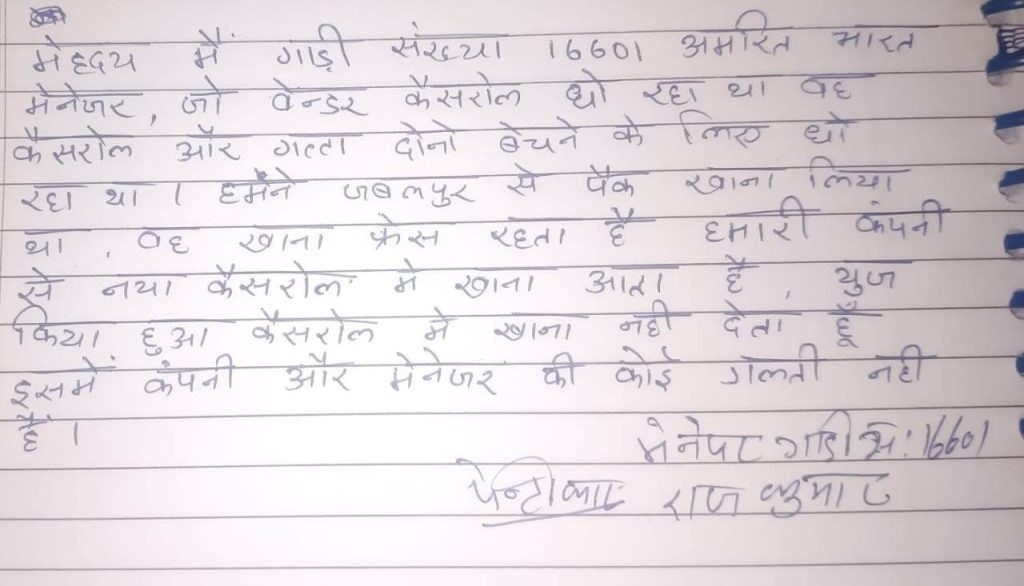 मोहदय में गाड़ी संख्या 16601 अमरित भारत
मेनेजर, जो वेन्डर कैसरोल धो रहा था वह
कैसरोल और गत्ता दोनो बेचने के लिए धो
रहा था । हमने जबलपुर से पैक खाना लिया
था , वह खाना फ्रेस रहता है हमारी कंपनी
से नया कैसरोल में खाना आता है , युज
किया हुआ कैसरोल में खाना नही देता हूँ
इसमें कंपनी और मेनेजर की कोई गलती नही
है ।
मेनेजर गाडी सं: 16601
पेन्ट्रीकार राज कुमार